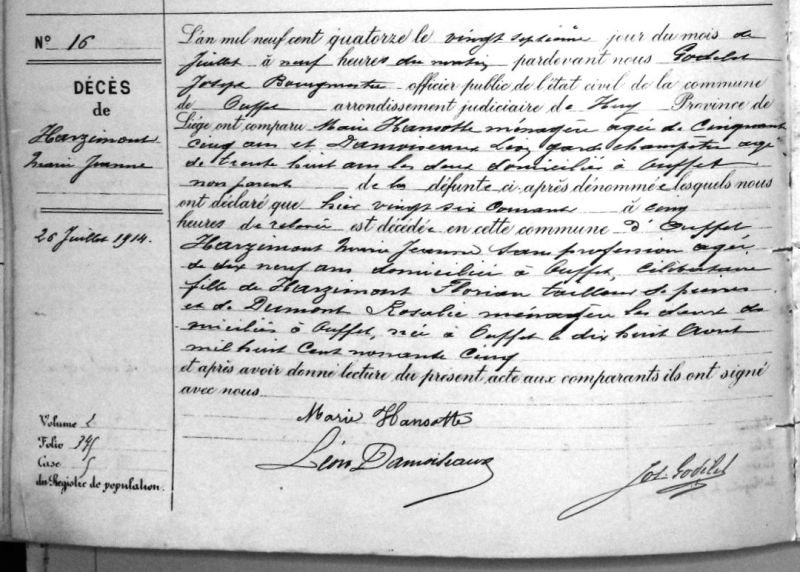 N° 16
DÉCÈS
de
Harzimont
Marie Jeanne
26 Juillet 1914.
Volume 2
Folio 345
Case 5
du Registre de population.
L'an mil neuf cent quatorze le vingt septième jour du mois de
juillet à neuf heures du matin, pardevant nous Godelet
Joseph Bourgmestre officier public de l'état civil de la commune
de Ouffet arrondissement judiciaire de Huy Province de
Liége ont comparu Marie Hansotte ménagère agée de cinquante
cinq ans et Damoiseaux Léon garde champêtre agé
de trente huit ans les deux domiciliés à Ouffet
non parents de la défunte ci-après dénommée lesquels nous
ont déclaré que hier vingt six courant à cinq
heures de relevée est décédée en cette commune d'Ouffet
Harzimont Marie Jeanne sans profession agée
de dix neuf ans domiciliée à Ouffet, célibataire
fille de Harzimont Florian tailleur de pierres
et de Dumont Rosalie ménagère les deux do
miciliés à Ouffet, née à Ouffet le dix huit Août
mil huit cent nonante cinq
et après avoir donné lecture du présent acte aux comparants ils ont signé
avec nous
Marie Hansotte
Léon Damoiseaux
Jos. Godelet